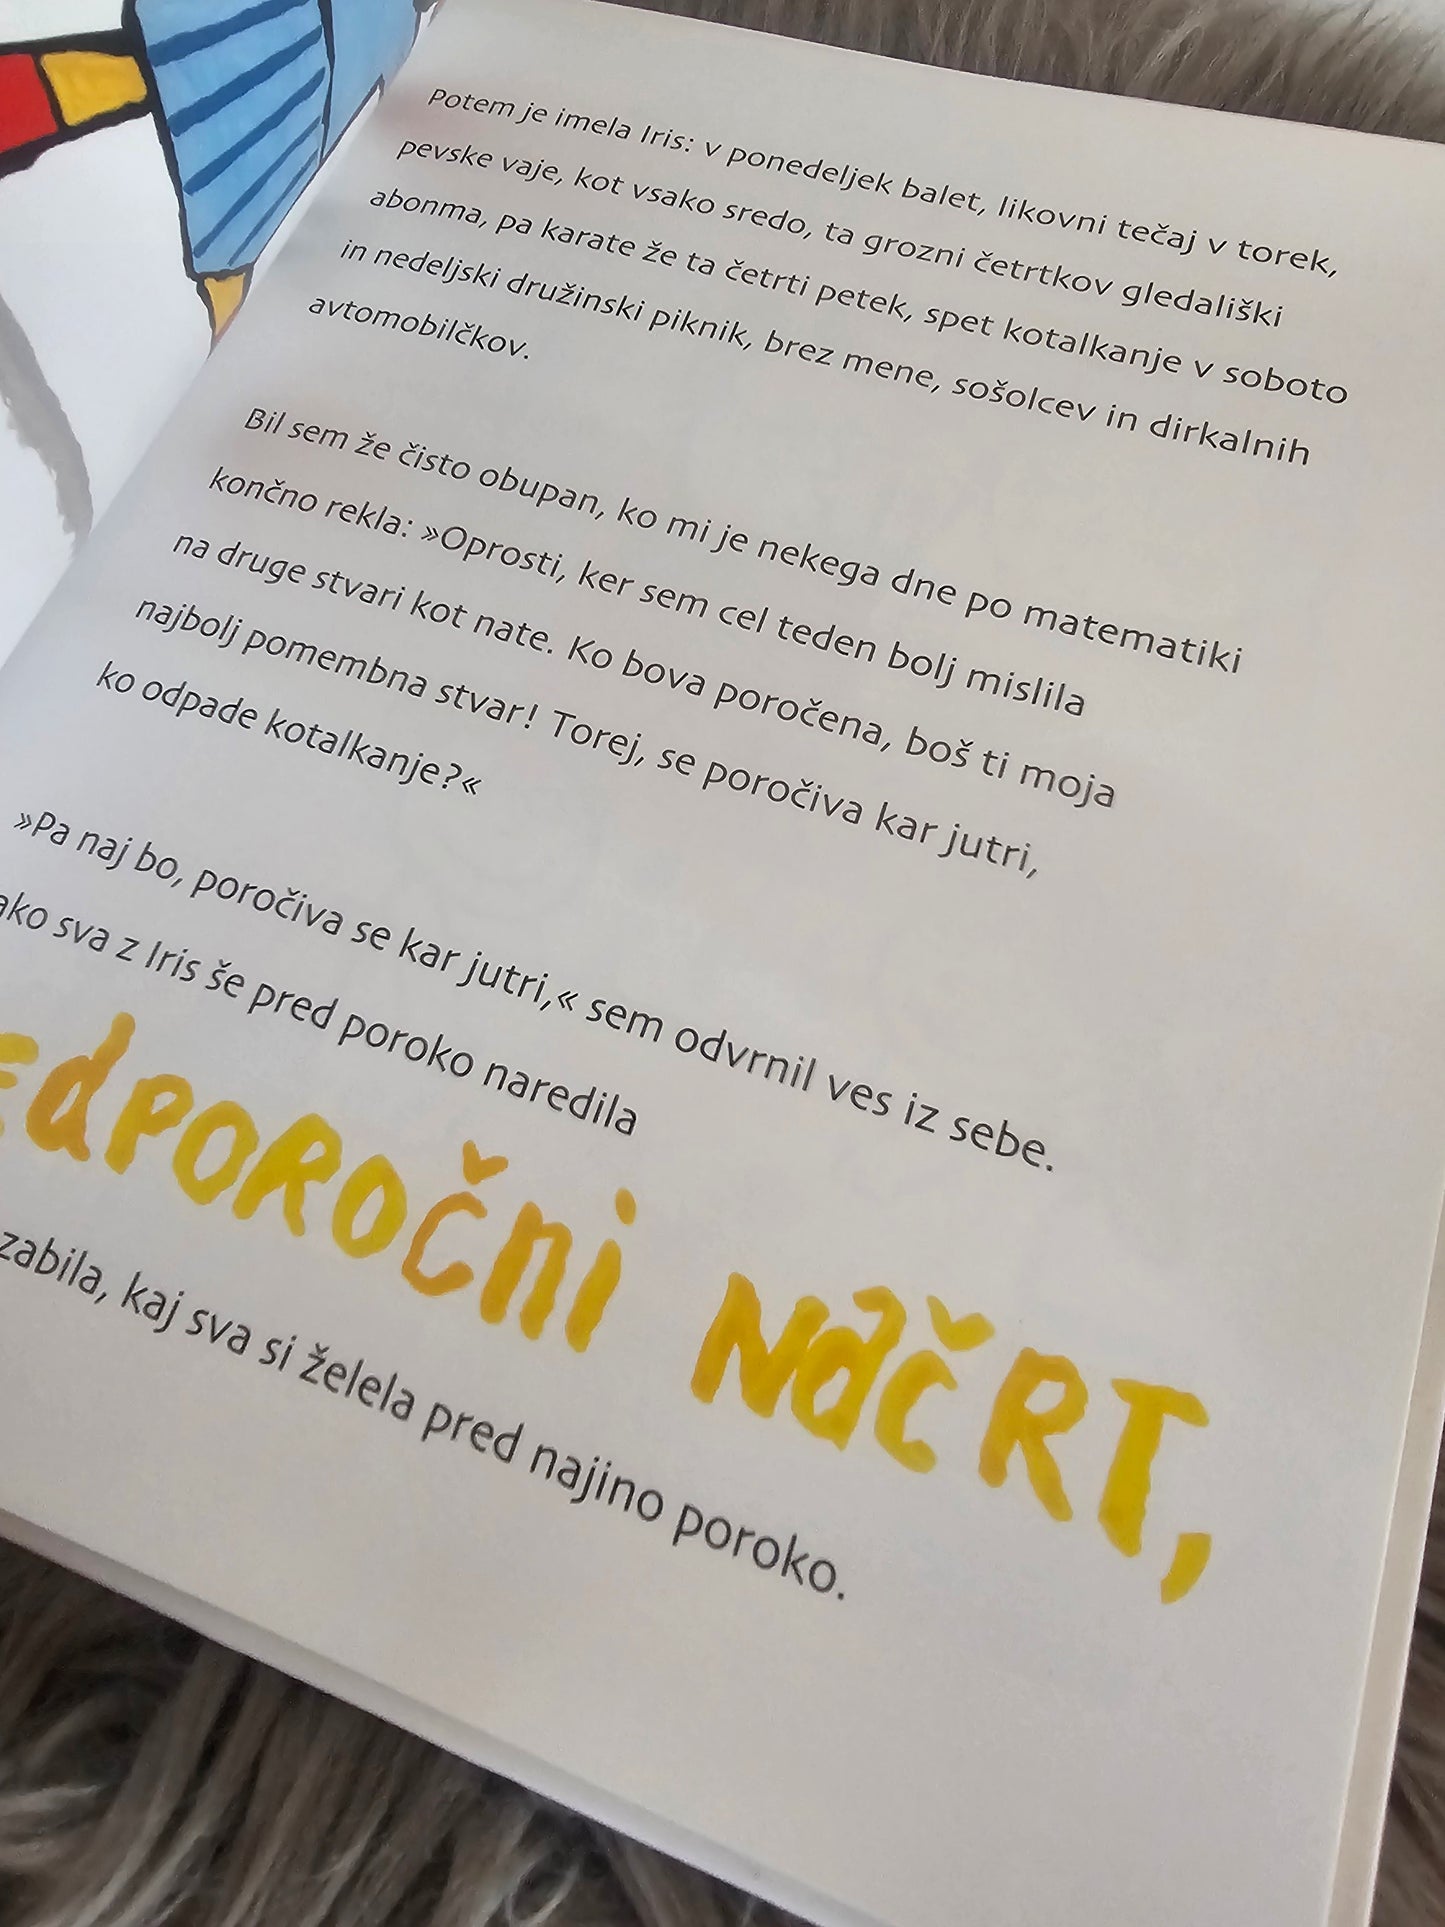 Potem je imela Iris: v ponedeljek balet, likovni tečaj v torek,
pevske vaje, kot vsako sredo, ta grozni četrtkov gledališki
abonma, pa karate že ta četrti petek, spet kotalkanje v soboto
in nedeljski družinski piknik, brez mene, sošolcev in dirkalnih
avtomobilčkov.
Bil sem že čisto obupan, ko mi je nekega dne po matematiki
končno rekla: »Oprosti, ker sem cel teden bolj mislila
na druge stvari kot nate. Ko bova poročena, boš ti moja
najbolj pomembna stvar! Torej, se poročiva kar jutri,
ko odpade kotalkanje?«
»Pa naj bo, poročiva se kar jutri,« sem odvrnil ves iz sebe.
ako sva z Iris še pred poroko naredila
EdPOROČNI NAČRT,
zabila, kaj sva si želela pred najino poroko.